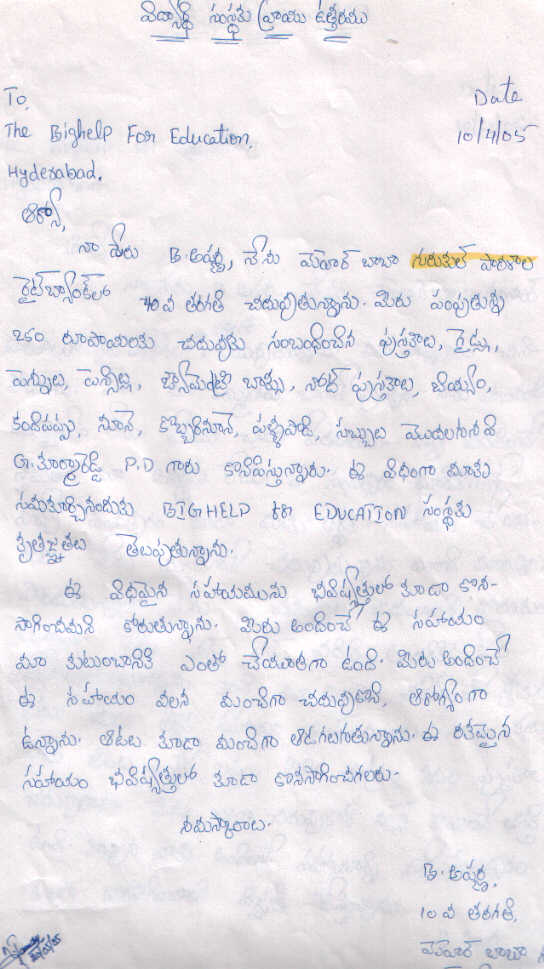 విద్యార్థి సంస్థకు వ్రాయు ఉత్తరము
To,
Date
The Bighelp For Education,
10/4/05
Hyderabad.
ఆర్యా,
నా పేరు B. అపర్ణ, నేను మెహెర్ బాబా గురుకుల్ పాఠశాల
10 వ తరగతి చదువుతున్నాను. మీరు పంపుతున్న
250 రూపాయలకు చదువుకు సంబంధించిన పుస్తకాలు, ప్యాడ్లు,
పెన్నులు, పెన్సిల్లు, జామెట్రి బాక్సు, నోట్ పుస్తకాలు, బియ్యం,
కందిపప్పు, నూనె, కొబ్బరినూనె, పళ్ళపొడి, సబ్బులు మొదలగునవి
P.D గారు కొనిపిస్తున్నారు. ఈ విధంగా మాకు
సమకూర్చినందుకు BIGHELP FOR EDUCATION సంస్థకు
కృతజ్ఞతలు తెలుపుతున్నాను.
ఈ విధమైన సహాయమును భవిష్యత్తులో కూడా కొన-
సాగించమని కోరుతున్నాను. మీరు అందించే ఈ సహాయం
మా కుటుంబానికి ఎంతో చేయూతగా ఉంది. మీరు అందించే
ఈ సహాయం వలన మంచిగా చదువుకొని, ఆరోగ్యంగా
ఉన్నాను. ఆటలు కూడా మంచిగా ఆడగలుగుతున్నాను. ఈ రకమైన
సహాయం భవిష్యత్తులో కూడా కొనసాగించగలరు.
నమస్కారాలు.
B. అపర్ణ,
10 వ తరగతి,
మెహెర్ బాబా